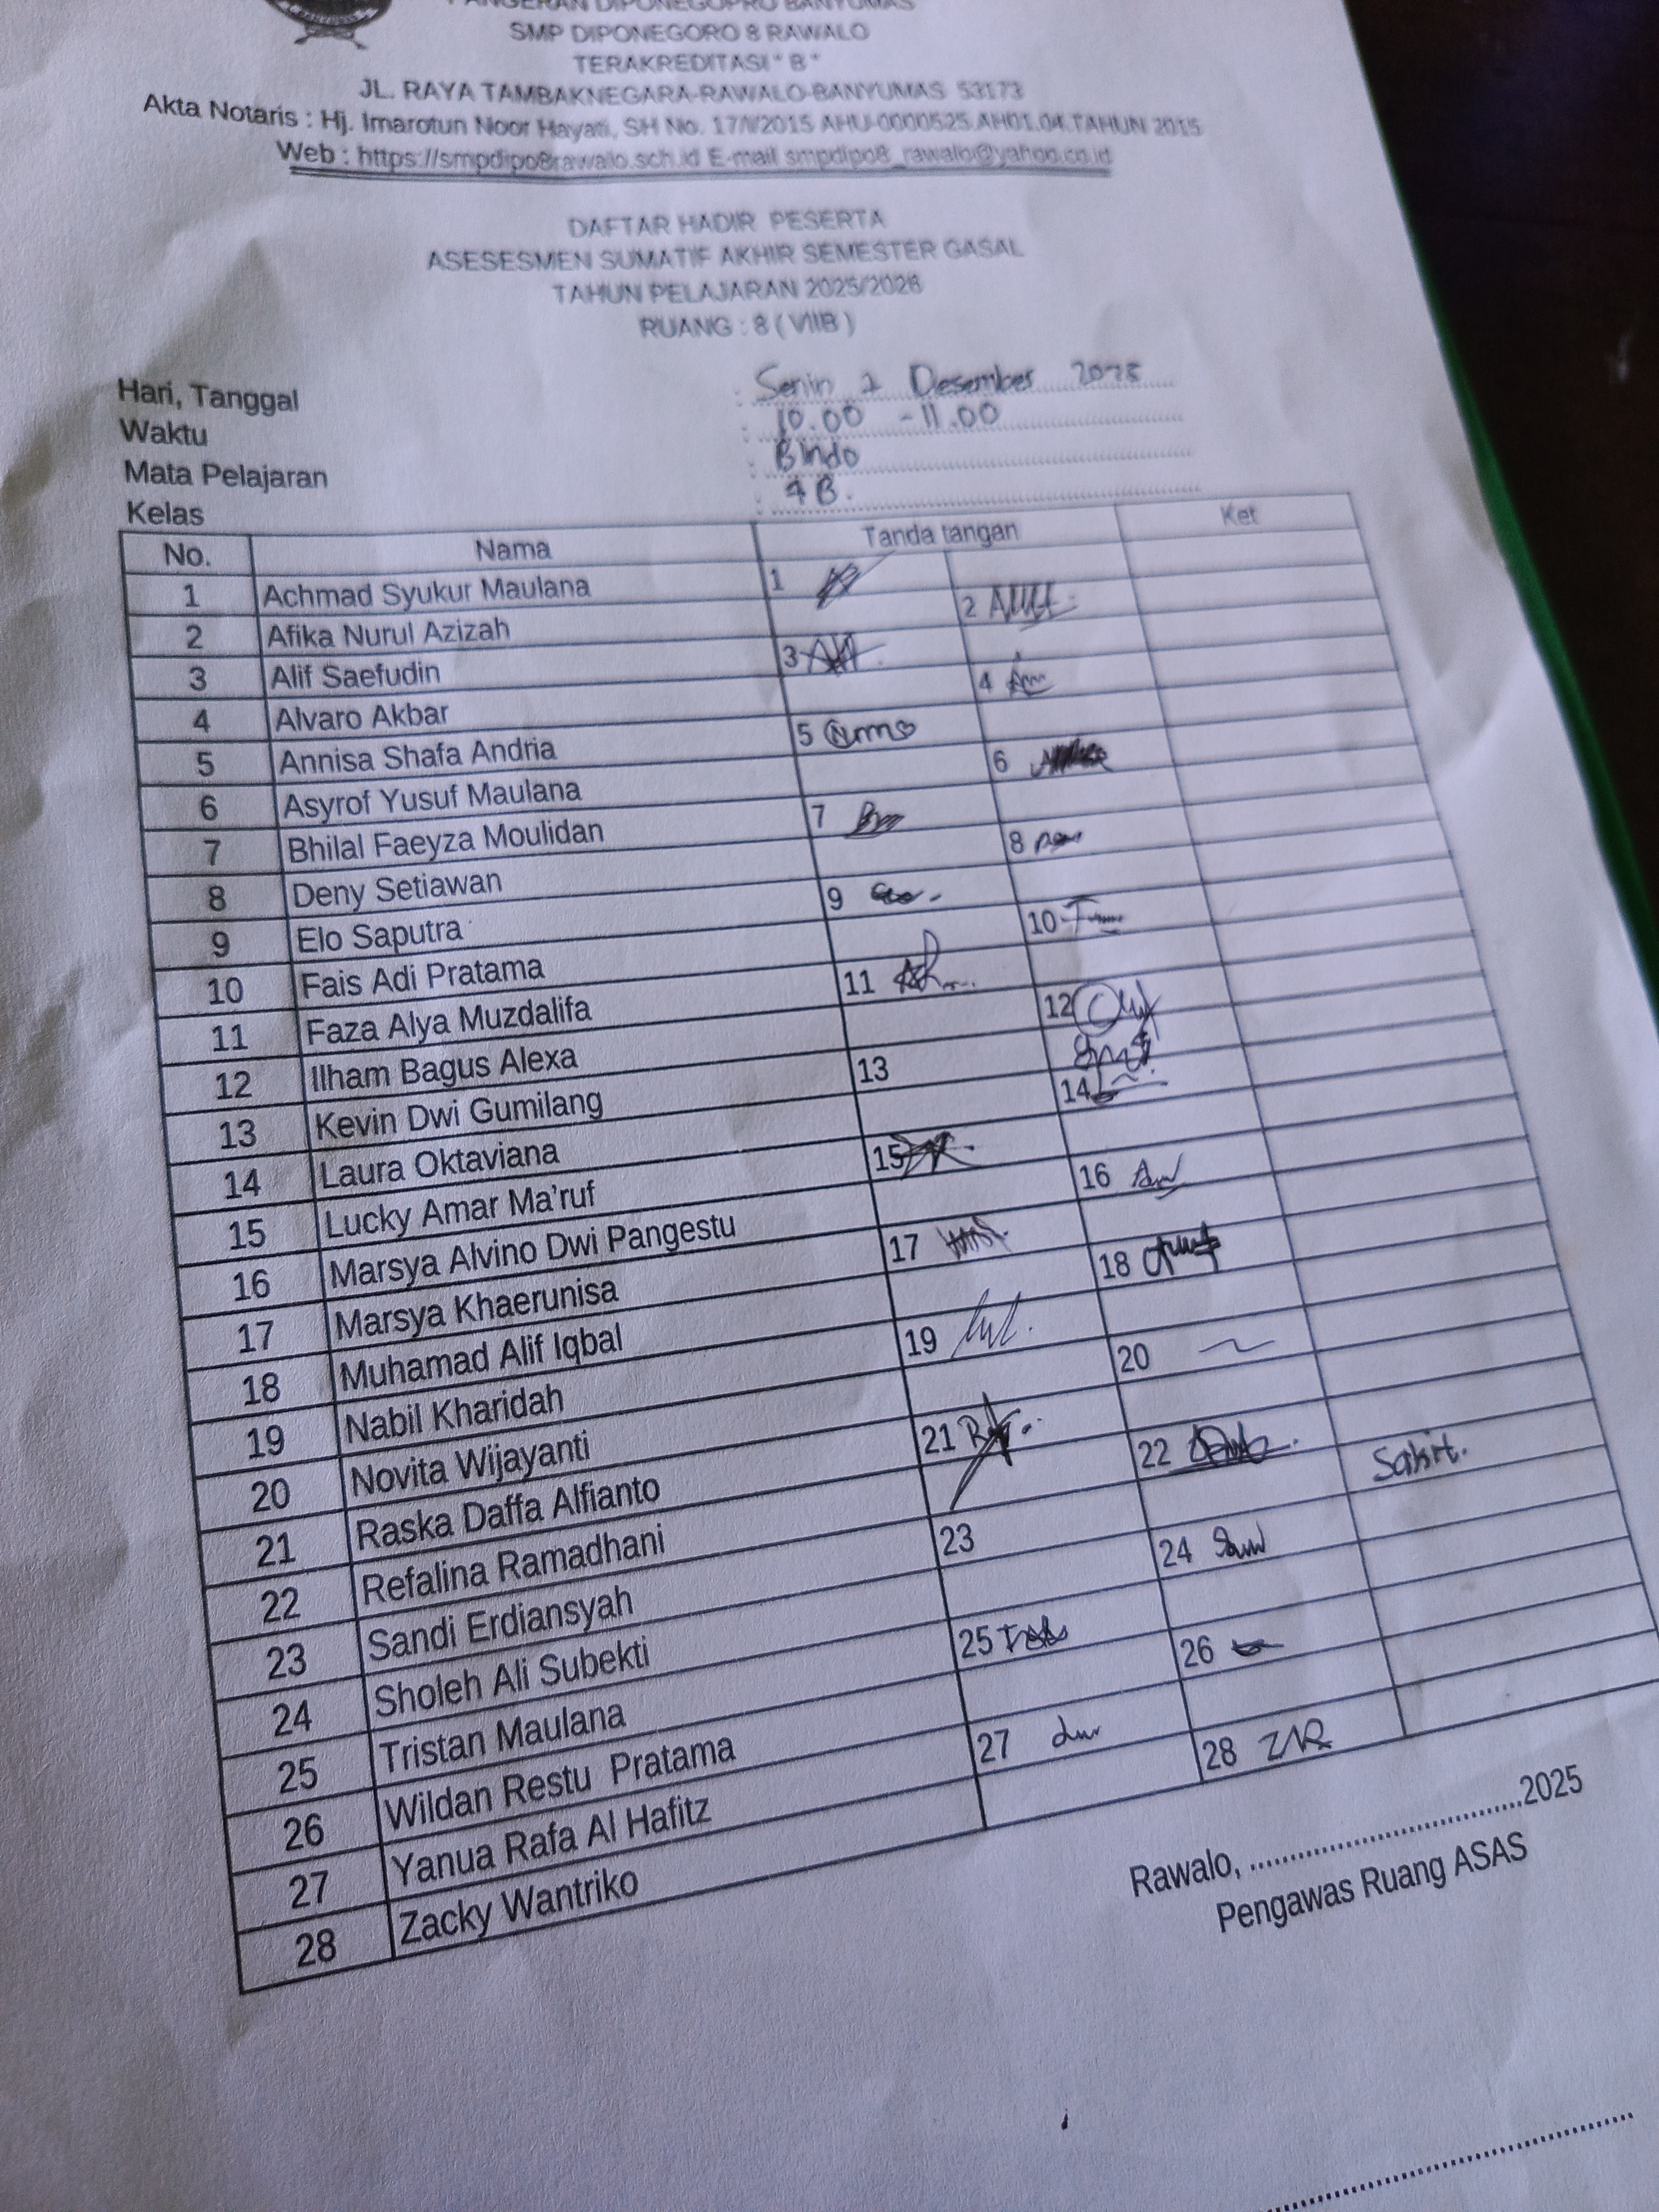 PANGERAN DIPONEGOPRO BANYUMAS
SMP DIPONEGORO 8 RAWALO
TERAKREDITASI " B "
JL. RAYA TAMBAKNEGARA-RAWALO-BANYUMAS 53173
Akta Notaris : Hj. Imarotun Noor Hayati, SH No. 17/I/2015 AHU-0000525.AH01.04.TAHUN 2015
Web : https://smpdipo8rawalo.sch.id E-mail smpdipo8_rawalo@yahoo.co.id
DAFTAR HADIR PESERTA
ASESESMEN SUMATIF AKHIR SEMESTER GASAL
TAHUN PELAJARAN 2025/2026
RUANG : 8 ( VIIB )
Hari, Tanggal : Senin 1 Desember 2025
Waktu : 10.00 - 11.00
Mata Pelajaran : BIndo
Kelas : 7 B.
No. Nama Tanda tangan Ket
1 Achmad Syukur Maulana 1
2 Afika Nurul Azizah 2
3 Alif Saefudin 3
4 Alvaro Akbar 4
5 Annisa Shafa Andria 5
6 Asyrof Yusuf Maulana 6
7 Bhilal Faeyza Moulidan 7
8 Deny Setiawan 8
9 Elo Saputra 9
10 Fais Adi Pratama 10
11 Faza Alya Muzdalifa 11
12 Ilham Bagus Alexa 12
13 Kevin Dwi Gumilang 13
14 Laura Oktaviana 14
15 Lucky Amar Ma'ruf 15
16 Marsya Alvino Dwi Pangestu 16
17 Marsya Khaerunisa 17
18 Muhamad Alif Iqbal 18
19 Nabil Kharidah 19
20 Novita Wijayanti 20
21 Raska Daffa Alfianto 21
22 Refalina Ramadhani 22
23 Sandi Erdiansyah 23 Sakit.
24 Sholeh Ali Subekti 24
25 Tristan Maulana 25
26 Wildan Restu Pratama 26
27 Yanua Rafa Al Hafitz 27
28 Zacky Wantriko 28
Rawalo, ....................................2025
Pengawas Ruang ASAS